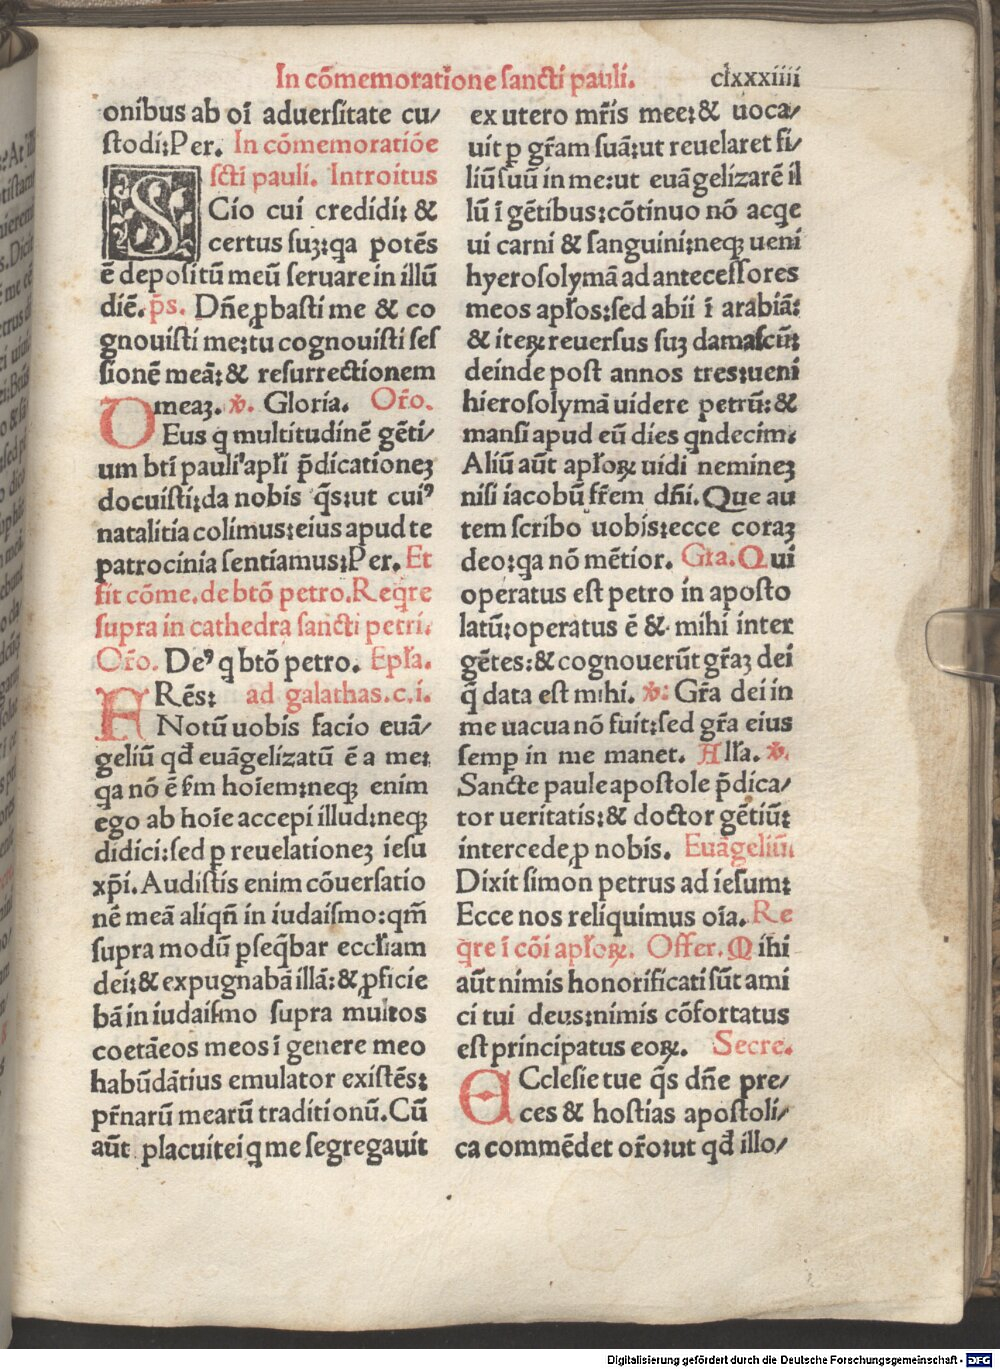 In cōmemoratione sancti pauli.
clxxxiiii
onibus ab oī aduersitate cu/
stodi:Per. In cōmemoratiōe
scti pauli. Introitus
SCio cui credidi: &
certus suꝫ:qa potēs
ē depositū meū seruare in illū
diē. p̄s. Dn̄e ꝓbasti me & co
gnouisti me:tu cognouisti ses
sionē meā:& resurrectionem
meaꝫ. ℣. Gloria. Or̄o.
DEus q multitudinē gēti/
um bti pauli apłi p̄dicationeꝫ
docuisti:da nobis q̄s:ut cuiꝰ
natalitia colimus:eius apud te
patrocinia sentiamus:Per. Et
fit cōme. de btō petro. Reqre
supra in cathedra sancti petri.
Or̄o. Deꝰ q btō petro. Epła.
FRēs: ad galathas.c.i.
Notū uobis facio euā/
geliū qd̄ euāgelizatū ē a me:
qa nō ē s̄m hoīem:neqꝫ enim
ego ab hoīe accepi illud:neqꝫ
didici:sed ꝑ reuelationeꝫ iesu
xp̄i. Audistis enim cōuersatio
nē meā aliqn̄ in iudaismo:qm̄
supra modū ꝑseq̄bar eccłiam
dei:& expugnabā illā:& ꝓficie
bā in iudaismo supra multos
coetāeos meos ī genere meo
habūdātius emulator existēs:
pr̄narū mearū traditionū. Cū
aūt placuit ei q me segregauit
ex utero mr̄is mee:& uoca/
uit ꝑ gr̄am suā:ut reuelaret fi/
liū suū in me:ut euāgelizarē il
lū ī gētibus:cōtinuo nō acqe
ui carni & sanguini:neqꝫ ueni
hyerosolymā ad antecessores
meos apłos:sed abii ī arabiā:
& iteꝝ reuersus suꝫ damascū:
deinde post annos tres:ueni
hierosolymā uidere petrū:&
mansi apud eū dies qndecim.
Aliū aūt apłoꝝ uidi nemineꝫ
nisi iacobū fr̄em dn̄i. Que au
tem scribo uobis:ecce coraꝫ
deo:qa nō mētior. Gra. Qui
operatus est petro in aposto
latū:operatus ē & mihi inter
gētes:& cognouerūt gr̄aꝫ dei
q̄ data est mihi. ℣: Gr̄a dei in
me uacua nō fuit:sed gr̄a eius
semꝑ in me manet. Ałła. ℣.
Sancte paule apostole p̄dica/
tor ueritatis:& doctor gētiū:
intercede ꝓ nobis. Euāgeliū
Dixit simon petrus ad iesum:
Ecce nos reliquimus oīa. Re
q̄re ī cōi apłoꝝ. Offer. Mihi
aūt nimis honorificati sūt ami
ci tui deus:nimis cōfortatus
est principatus eoꝝ. Secre.
ECclesie tue q̄s dn̄e pre/
ces & hostias apostoli/
ca commēdet or̄o:ut qd̄ illo/
Digitalisierung gefördert durch die Deutsche Forschungsgemeinschaft - DFG